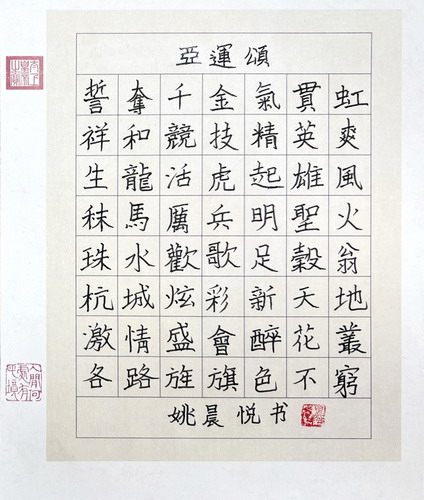 亞運頌
誓奪千金氣貫虹
祥和競技精英爽
生龍活虎起雄風
秣馬厲兵明聖火
珠水歡歌足穀翁
杭城炫彩新天地
激情盛會醉花叢
各路旌旗色不窮
姚晨悦书